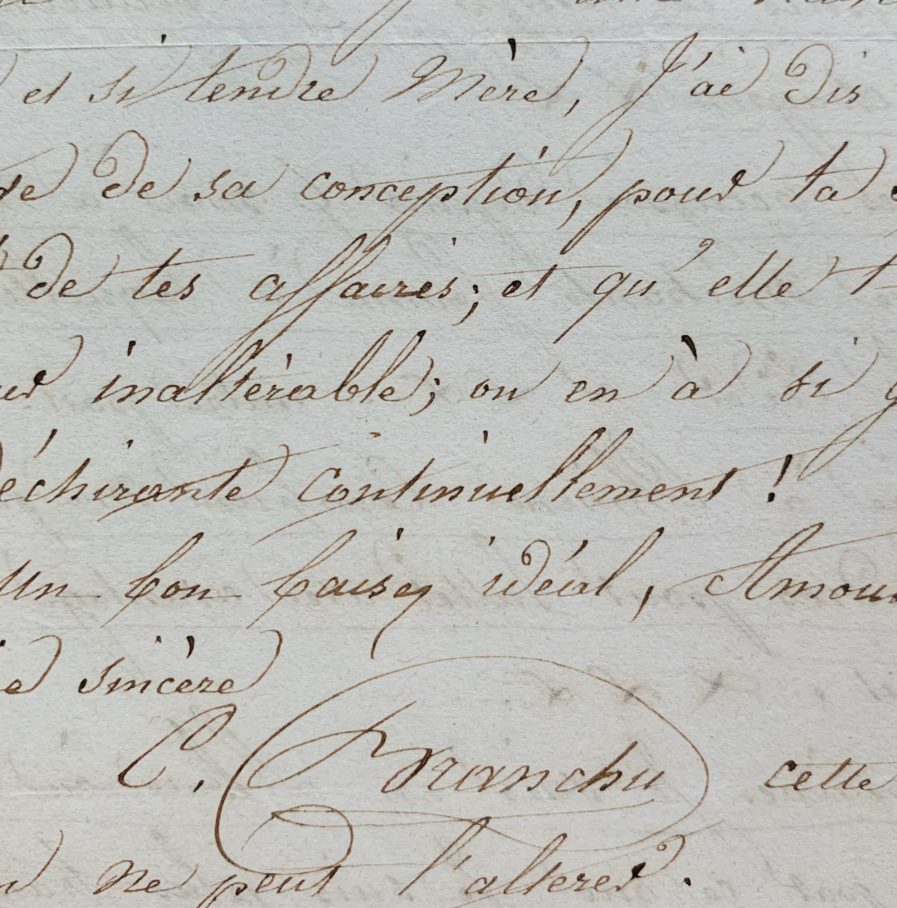 et si tendre Mère, J'ai dis
de sa conception, pour ta
de tes affaires; et qu'elle t
inaltèrable; on en à si
déchirante continuellement !
un bon baiser idéal, Amour
sincère
C. Branchu cette
ne peut l'alterer.